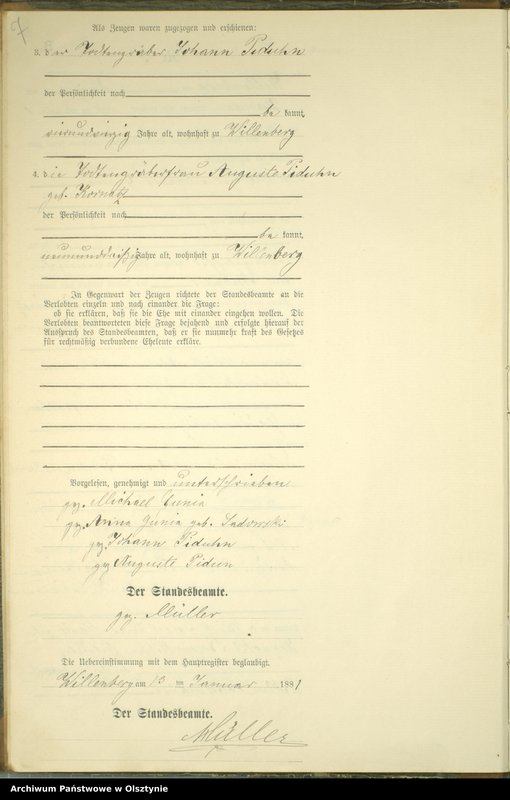 7
Als Zeugen waren zugezogen und erschienen:
3. der Todtengräber Johann Piduhn
der Persönlichkeit nach
bekannt,
vierundvierzig Jahre alt, wohnhaft zu Willenberg
4. die Todtengräberfrau Auguste Piduhn
geb. Kornatz
der Persönlichkeit nach
bekannt,
neununddreißig Jahre alt, wohnhaft zu Willenberg
In Gegenwart der Zeugen richtete der Standesbeamte an die
Verlobten einzeln und nach einander die Frage:
ob sie erklären, daß sie die Ehe mit einander eingehen wollen. Die
Verlobten beantworteten diese Frage bejahend und erfolgte hierauf der
Ausspruch des Standesbeamten, daß er sie nunmehr kraft des Gesetzes
für rechtmäßig verbundene Eheleute erkläre.
Vorgelesen, genehmigt und unterschrieben
gez. Michael Gunia
gez. Anna Gunia geb. Sadowski
gez. Johann Piduhn
gez. Auguste Pidun
Der Standesbeamte.
gez. Müller
Die Uebereinstimmung mit dem Hauptregister beglaubigt.
Willenberg am 13 ten Januar 1881
Der Standesbeamte.
Müller
Archiwum Państwowe w Olsztynie